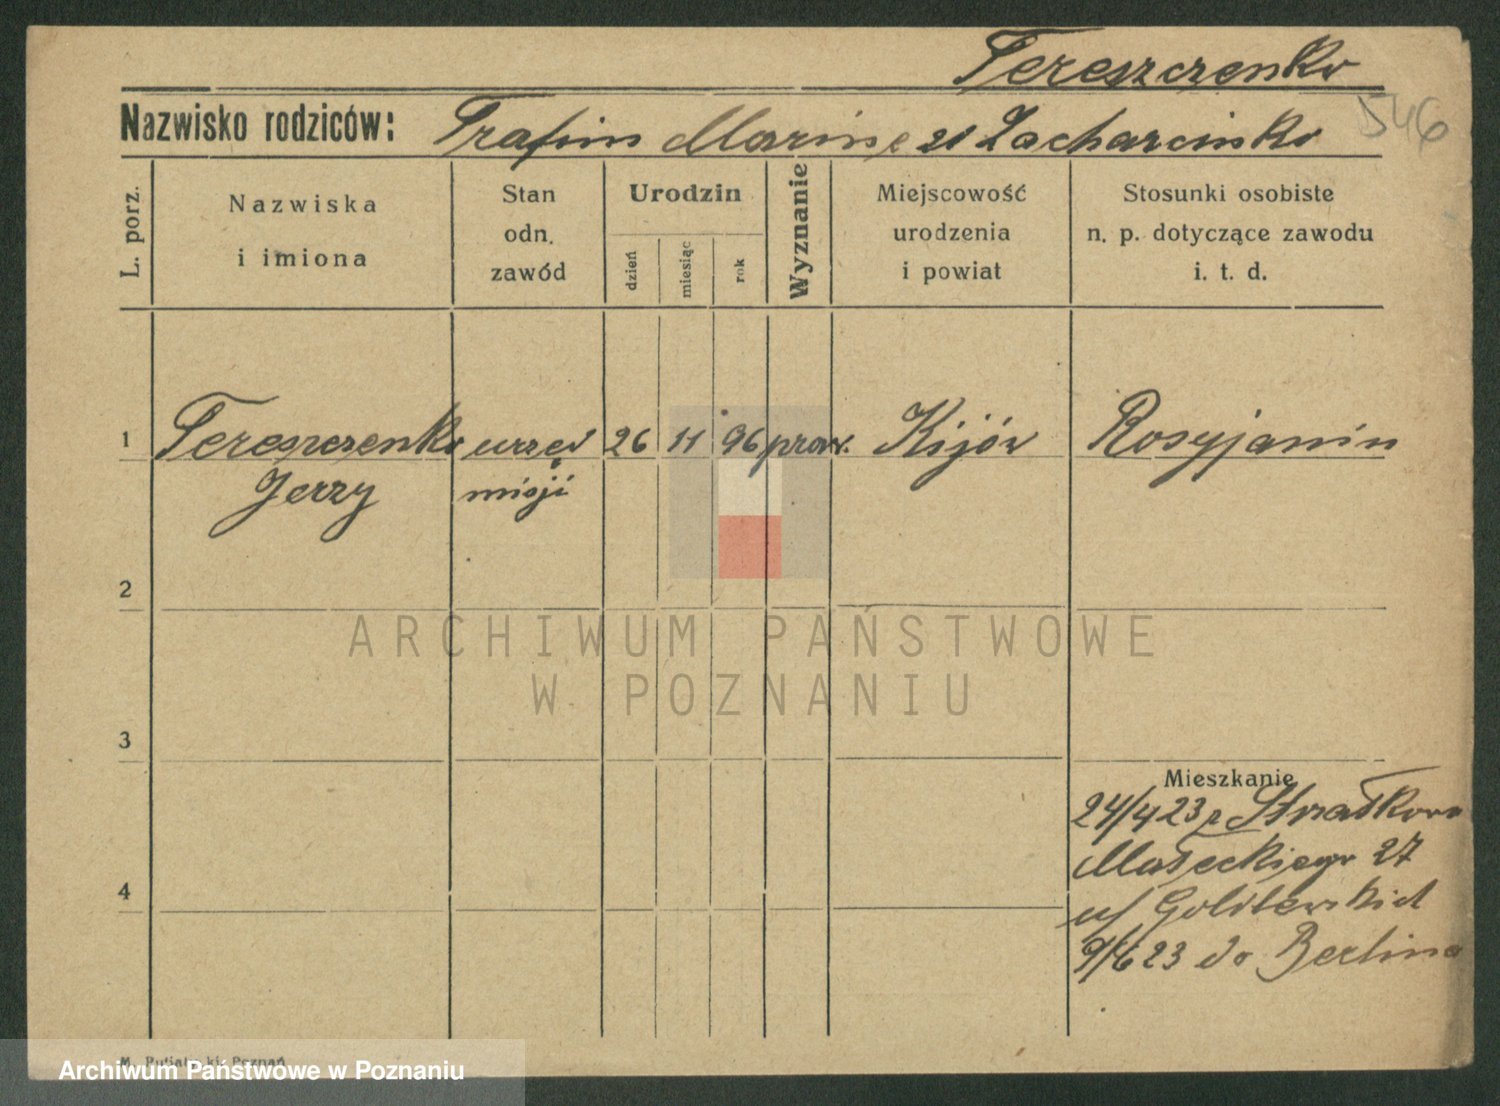 Tereszczenko
546
Nazwisko rodziców: Trafim Maring zd Zacharcinko
L. porz.
Nazwiska
i imiona
Stan
odn.
zawód
Urodzin
dzień
miesiąc
rok
Wyznanie
Miejscowość
urodzenia
i powiat
Stosunki osobiste
n. p. dotyczące zawodu
i. t. d.
1 Tereszczenko urzęd 26 11 96 praw. Kijów Rosyjanin
Jerzy misji
2
ARCHIWUM PAŃSTWOWE
W POZNANIU
3
Mieszkanie
24/4 23 z Strzałkowa
Małeckiego 27
4
u/
9/6 23 do Berlina
M. Poznań
Archiwum Państwowe w Poznaniu